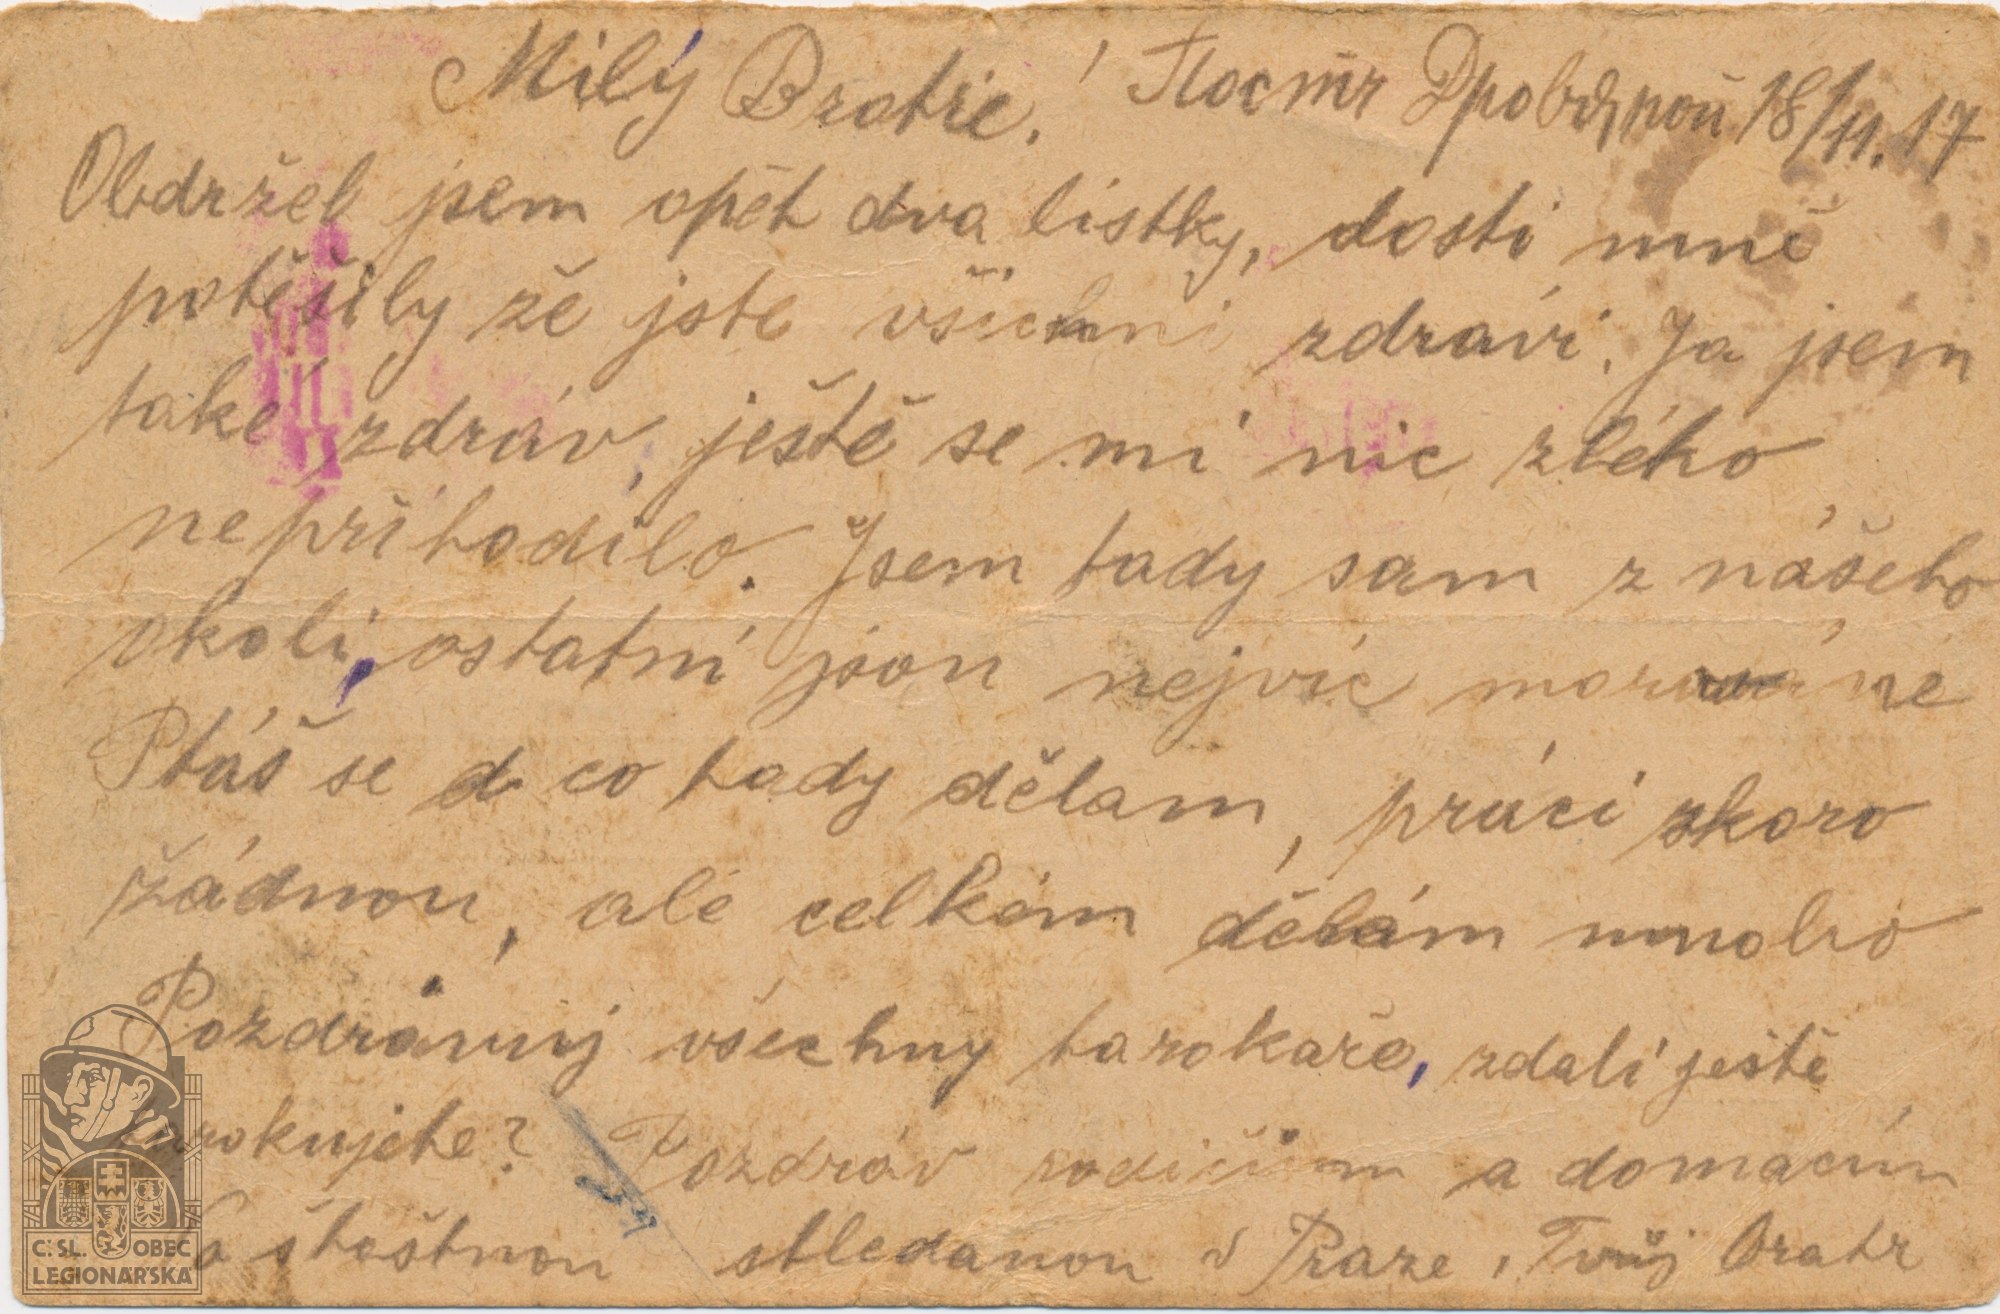 Milý Bratře! 18/11.17
Obdržel jsem opět dva lístky, dosti mně
potěšily že jste všichni zdrávi. Ja jsem
také zdráv, ještě se mi nic zlého
nepřihodilo. Jsem tady sam z nášeho
okolí, ostatní jsou nejvíc moraváné
Ptáš se co tady dělam, práci skoro
žádnou, ale celkém dělám mnoho
Pozdravuj všechny tarokaře, zdali ještě
tarokujete? Pozdráv rodičum a domacím
Na šťastnou shledanou v Praze, Tvůj Bratr
Č.SL. OBEC
LEGIONÁŘSKÁ